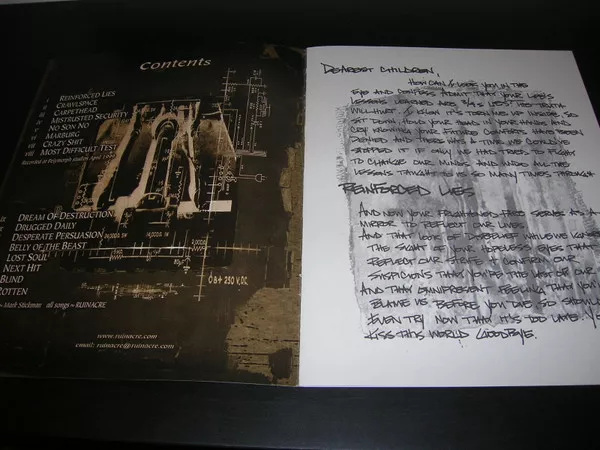 Contents
i Reinforced Lies
Crawlspace
Carpethead
Mistrusted Security
No Son No
Marburg
vii Crazy Shit
viii Most Difficult Test
Recorded at Polymorph studios April
Dream of Destruction
Drugged Daily
Desperate Persuasion
Belly of the Beast
Lost Soul
Next Hit
Blind
Rotten
Mark Stickman all songs - RUINACRE
0.8 + 250 V. DC
www.ruinacre.com
email: ruinacre@ruinacre.com
DEAREST CHILDREN,
HOW CAN I LOOK YOU IN THE
EYE AND CONFESS ADMIT THAT YOUR LIFE'S
LESSONS LEARNED ARE LIES THE TRUTH
WILL HURT. I KNOW IT'S TORN ME UP INSIDE, SO
SIT DOWN, HOLD YOUR HEAD IN YOUR HANDS AND
CRY KNOWING YOUR FUTURE COMFORTS HAVE BEEN
DENIED AND THERE WAS A TIME WE COULD'VE
STOPPED IT IF ONLY WE HAD TRIED TO FIGHT
TO CHANGE OUR MINDS AND MADE ALL THE
LESSONS TAUGHT TO US SO MANY TIMES THROUGH
REINFORCED LIES
AND NOW YOUR FRIGHTENED FACE SERVES AS A
MIRROR TO REFLECT OUR LIVES
AND THAT LOOK OF DISBELIEF WHILE WE
THE SIGHT IN YOUR HOPELESS EYES THAT
REFLECT OUR STATE & CONFIRM OUR
SUSPICIONS THAT YOU'RE THE LAST OF OUR
AND THAT OMNIPRESENT FEELING THAT YOU'LL
BLAME US BEFORE YOU DIE SO SHOULD
EVEN TRY NOW THAT IT'S TOO LATE
KISS THIS WORLD GOODBYE.